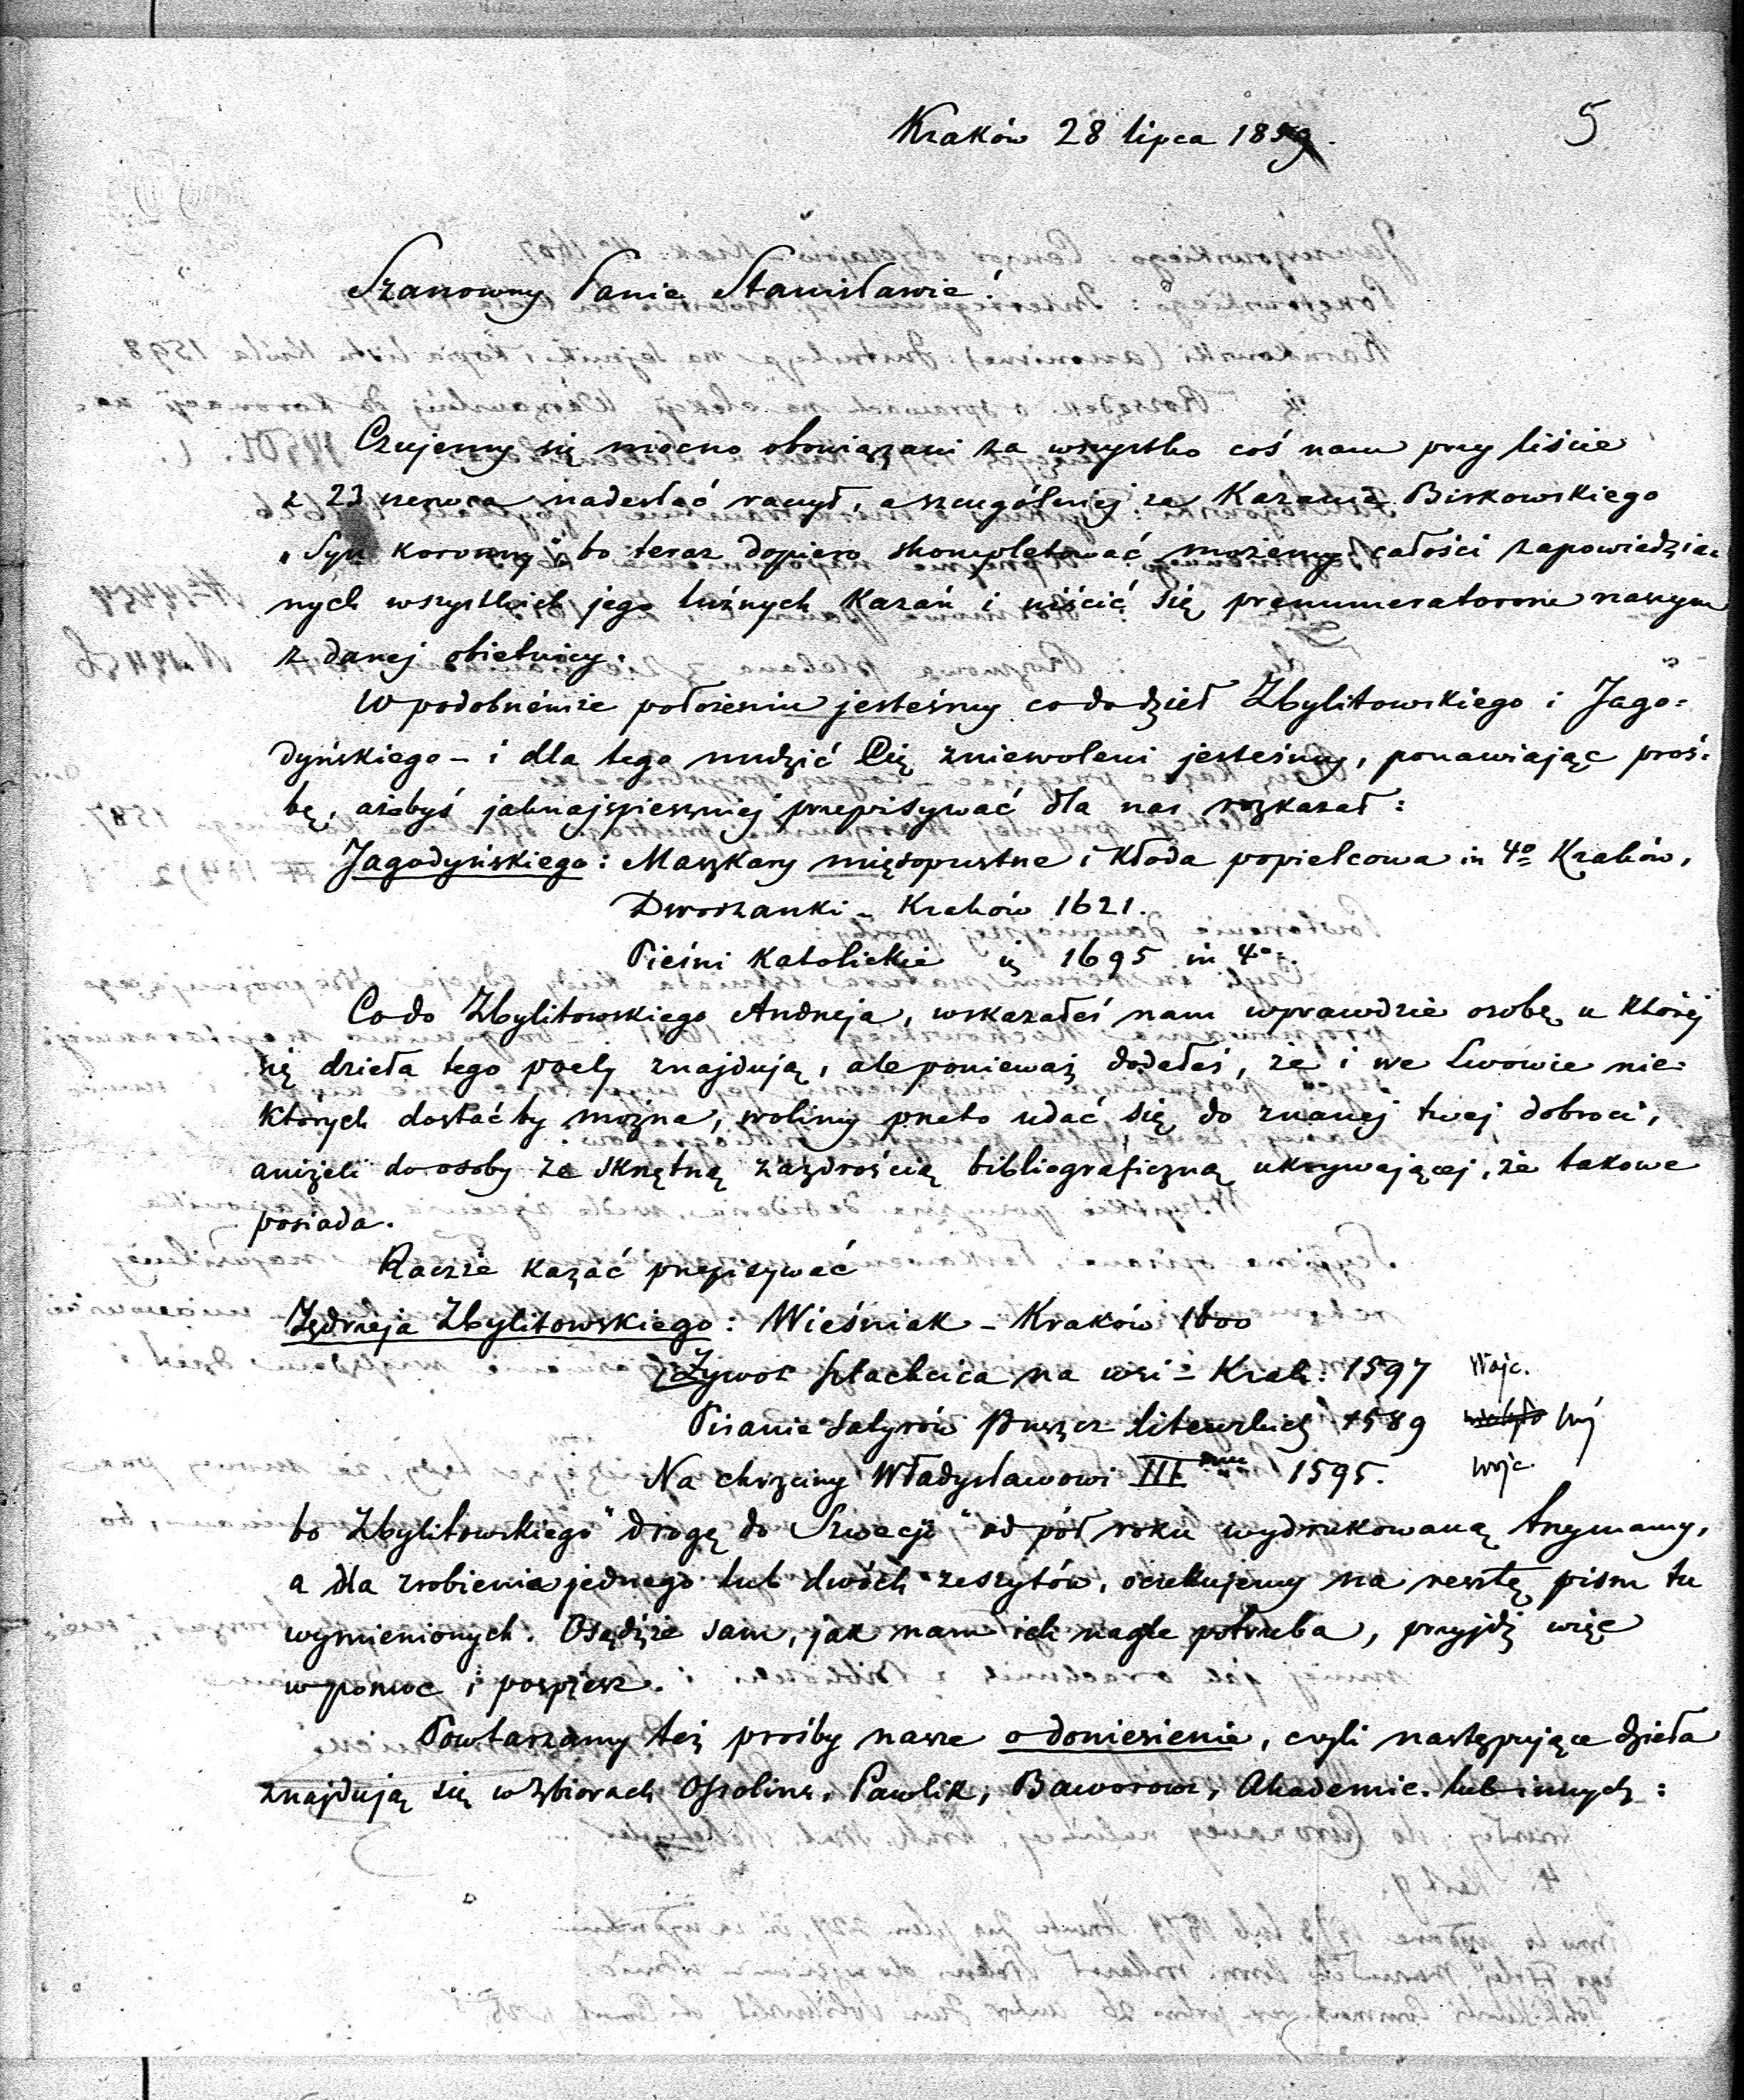 Kraków 28 lipca 1859.
5
Szanowny Panie Stanisławie!
Czujemy się mocno obowiązani za wszystko coś nam przy liście
z 23 czerwca nadesłać raczył, a szczególniej za Kazania Birkowskiego
„Syn koronny", bo teraz dopiero skompletować możemy całości zapowiedzia=
nych wszystkich jego luźnych Kazań i uiścić się prenumeratorom naszym
z danej obietnicy.
W podobnémże położeniu jesteśmy co do dzieł Zbylitowskiego i Jago=
dyńskiego – i dla tego nudzić Cię zniewoleni jesteśmy, ponawiając proś=
bę, ażebyś jaknajspieszniej przepisywać dla nas rozkazał:
Jagodyńskiego: Maszkary mięsopustne i Kłoda popielcowa in 4o Kraków,
Dworzanki – Kraków 1621.
Pieśni Katolickie iż 1695 in 4o.
Co do Zbylitowskiego Andrzeja, wskazałeś nam wprawdzie osobę u której
się dzieła tego poety znajdują, ale ponieważ dodałeś, że i we Lwowie nie=
których dostać by można, wolimy przeto udać się do znanej twej dobroci,
aniżeli do osoby ze skrzętną zazdrością bibliograficzną ukrywającej, że takowe
posiada.
Racz że kazać przepisywać
Jędrzeja Zbylitowskiego: Wieśniak – Kraków 1600
Żywot szlachcica na wsi – Krak: 1597 Wojc.
Pisanie Satyrów Puszcz litewskich 1589 Wój
Na chrzciny Władysławowi III 1595. Wojc.
bo Zbylitowskiego "drogę do Szwecji" od pół roku wydrukowaną trzymamy,
a dla zrobienia jednego lub dwóch zeszytów, oczekujemy na resztę pism tu
wymienionych. Osądźże sam, jak nam ich nagle potrzeba, przyjdź więc
w pomoc i pospiesz.
Powtarzamy też prośby nasze o doniesienie, czyli następujące dzieła
znajdują się w zbiorach Ossolińs. Pawlik, Baworow, Akademic. lub innych: